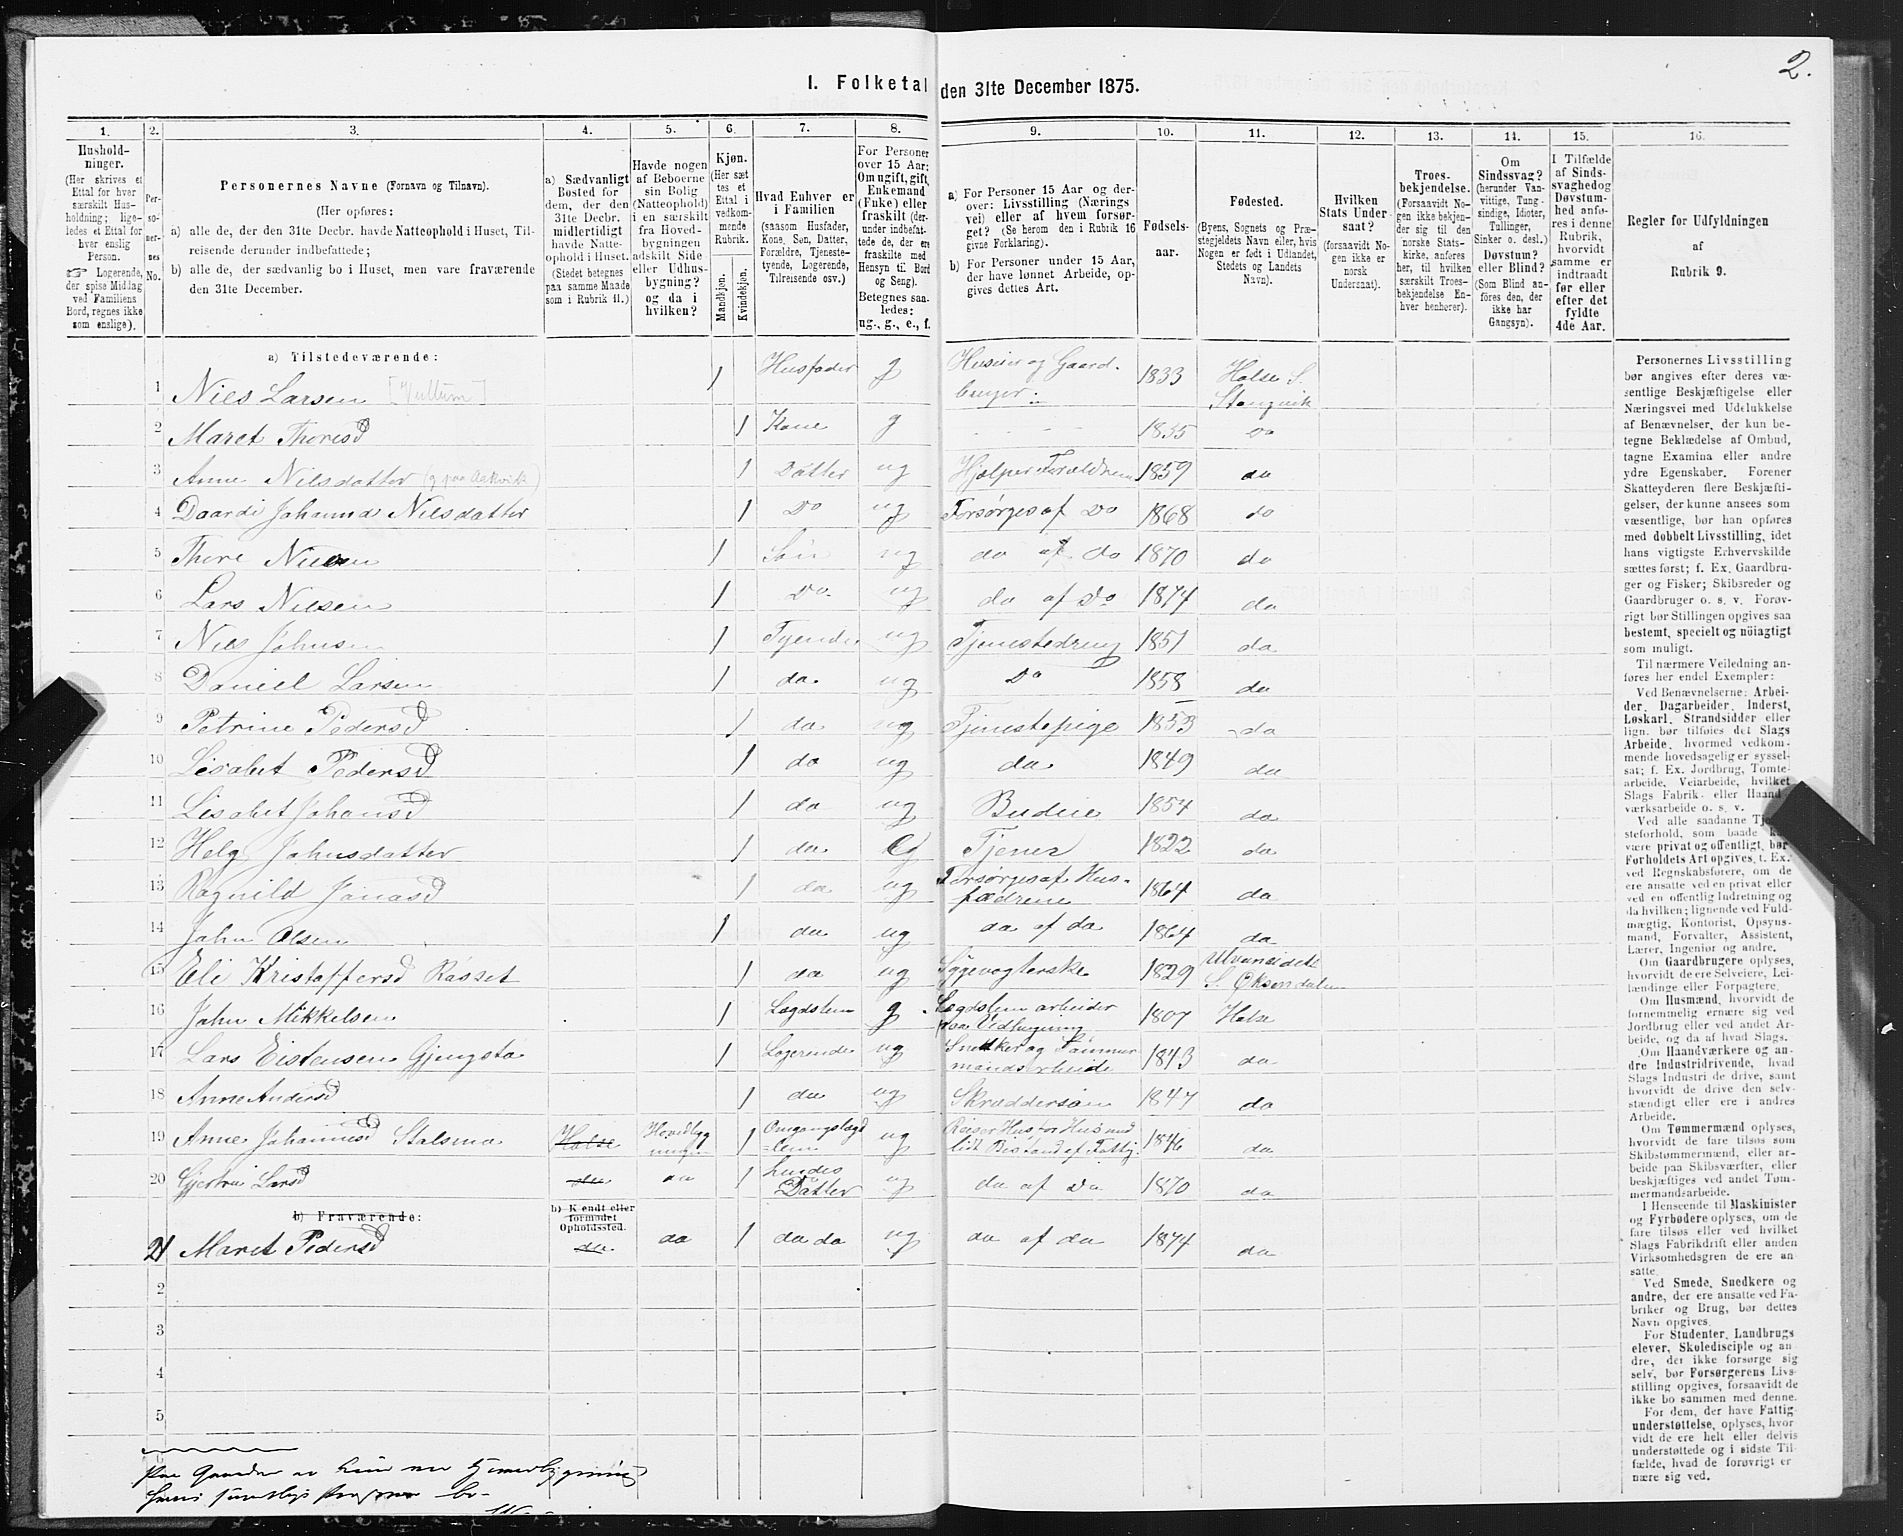 2.
I. Folketal den 31te December 1875.
1. 2. 3. 4. 5. 6. 7. 8. 9. 10. 11. 12. 13. 14. 15. 16.
Hushold-
ninger.
(Her skrives et
Ettal for hver
særskilt Hus-
holdning; lige-
ledes et Ettal for
hver enslig
Person.
☞ Logerende,
der spise Middag
ved Familiens
Bord, regnes ikke
som enslige).
Per-
so-
ner-
nes
No.
Personernes Navne (Fornavn og Tilnavn).
(Her opføres:
a) alle de, der den 31te Decbr. havde Natteophold i Huset, Til-
reisende derunder indbefattede;
b) alle de, der sædvanlig bo i Huset, men vare fraværende
den 31te December.
a) Sædvanligt
Bosted for
dem, der den
31te Decbr.
midlertidigt
havde Natte-
ophold i Huset.
(Stedet betegnes
paa samme Maade
som i Rubrik 11.)
Havde nogen
af Beboerne
sin Bolig
(Natteophold)
i en særskilt
fra Hoved-
bygningen
adskilt Side
eller Udhus-
bygning?
og da i
hvilken?
Kjøn.
(Her sæt
tes et
Ettal i
vedkom-
mende
Rubrik.
Mandkjøn.
Kvindekjøn.
Hvad Enhver er
i Familien
(saasom Husfader,
Kone, Søn, Datter,
Forældre, Tjeneste-
tyende, Logerende,
Tilreisende osv.)
For Personer
over 15 Aar:
Om ugift, gift,
Enkemand
(Enke) eller
fraskilt (der-
under indbefat-
tede de, der ere
fraskilte med
Hensyn til Bord
og Seng).
Betegnes saa-
ledes:
ug., g., e., f.
a) For Personer 15 Aar og der-
over: Livsstilling (Nærings
vei) eller af hvem forsør-
get? (Se herom den i Rubrik 16
givne Forklaring).
b) For Personer under 15 Aar,
der have lønnet Arbeide, op-
gives dettes Art.
Fødsels-
aar.
Fødested.
(Byens, Sognets og Præ-
stegjeldets Navn eller, hvis
Nogen er født i Udlandet,
Stedets og Landets
Navn).
Hvilken
Stats Under-
saat?
(forsaavidt No-
gen ikke er
norsk
Undersaat).
Troes-
bekjendelse.
(Forsaavidt No-
gen ikke bekjen-
der sig til den
norske Stats-
kirke, anføres
her, til hvilken
særskilt Troes-
bekjendelse En-
hver henhører).
Om
Sindssvag?
(herunder Van-
vittige, Tung-
sindige, Idioter,
Tullinger,
Sinker o. desl.)
Døvstum?
eller Blind?
(Som Blind an-
føres den, der
ikke har
Gangsyn).
I Tilfælde
af Sinds-
svaghedog
Døvstum-
hed anfø-
res i denne
Rubrik,
hvorvidt
samme er
indtraadt
før eller
efter det
fyldte
4de Aar.
Regler for Udfyldningen
af
Rubrik 9.
a) Tilstedeværende:
1 Niels Larsen 1 Husfader g Huseier og Gaard-
bruger 1833 Halse S.
Stangvik
2 Maret Thoresd 1 Kone g 1835 Do
3 Anne Nilsdatter 1 Datter ug Hjelper Forældrene 1859 do
4 Daardi Johanna Nilsdatter 1 Do ug Forsørges af Do 1868 do
5 Thore Nielsen 1 Søn ug do af do 1870 do
6 Lars Nielsen 1 Do ug do af Do 1874 do
7 Niels Johnsen 1 Tyende ug Tjenestedreng 1851 do
8 Daniel Larsen 1 do. ug Do 1858 do
9 Petrine Pedersd 1 do ug Tjenestepige 1853 do
10 Lisabet Pedersd 1 do ug do 1849 do
11 Lisabet Johansd 1 do ug Budeie 1854 do
12 Helg Johnsdatter 1 do Tjener 1822 do
13 Ragnild Jonasd 1 do ug Forsørges af Hus-
fædrene 1864 do
14 John Olsen 1 do ug do af do 1864 do
15 Eli Kristoffersd Røsset 1 do ug Sygevogterske 1829 Ulvundeidets
S. Øksendalen
16 John Mikkelsen 1 Lægdslem g Lægdslem arbeider
paa Vedhugning 1807 Halse
17 Lars Eistensen Gjengstø 1 Logerende ug Snekker og Tømmer
mandsarbeide 1843 do
18 Anne Andersd 1 do ug Skræddersøm 1847 do
19 Anne Johannesd Stalsmo Halse Hovedbyg
ningen 1 Omgangslægds
lem ug Reiser Hus for Hus med
lidt Bistand af Fattig. 1846 do
20 Gjertru Larsd do do 1 hendes
Datter ug do af Do 1870 do
b) Fraværende: b) Kjendt eller
formodet
Opholdssted.
21 Maret Pedersd do do 1 do do ug do af do 1874 do
2
3
4
5
6
Personernes Livsstilling
bør angives efter deres væ-
sentlige Beskjæftigelse eller
Næringsvei med Udelukkelse
af Benævnelser, der kun be-
tegne Beklædelse af Ombud,
tagne Examina eller andre
ydre Egenskaber. Forener
Skatteyderen flere Beskjæfti-
gelser, der kunne ansees som
væsentlige, bør han opføres
med dobbelt Livsstilling, idet
hans vigtigste Erhvervskilde
sættes først; f. Ex. Gaardbru-
ger og Fisker; Skibsreder og
Gaardbruger o. s. v. Forøv-
rigt bør Stillingen opgives saa
bestemt, specielt og nöiagtigt
som muligt.
Til nærmere Veiledning an-
føres her endel Exempler:
Ved Benævnelserne: Arbei-
der, Dagarbeider, Inderst,
Løskarl, Strandsidder eller
lign. bør tilføies det Slags
Arbeide, hvormed vedkom-
mende hovedsagelig er syssel-
sat; f. Ex. Jordbrug, Tomte-
arbeide, Veiarbeide, hvilket
Slags Fabrik- eller Haand-
værksarbeide o. s. v.
Ved alle saadanne
steforhold, som baade
være privat og offentligt, bør
Forholdets Art opgives, f. Ex.
ved Regnskabsførere, om de
ere ansatte ved en privat eller
ved en offentlig Indretning og
da hvilken; lignende ved Fuld-
mægtig, Kontorist, Opsyns-
mand, Forvalter, Assistent,
Lærer, Ingeniør og andre.
Om Gaardbrugere oplyses,
hvorvidt de ere Selveiere, Lei-
lændinge eller Forpagtere.
Om Husmænd, hvorvidt de
fornemmelig ernære sig ved
Jordbrug eller ved andet Ar-
beide, og da af hvad Slags.
Om Haandværkere og an-
dre Industridrivende, hvad
Slags Industri de drive, samt
hvorvidt de drive den selv-
stændigt eller ere i andres
Arbeide.
Om Tømmermænd oplyses,
hvorvidt de fare tilsøs som
Skibstømmermænd, eller ar-
beide paa Skibsværfter, eller
beskjæftiges ved andet Tøm-
mermandsarbeide.
I Henseende til Maskinister
og Fyrbødere oplyses, om de
fare tilsøs eller ved hvilket
Slags Fabrikdrift eller anden
Virksomhedsgren de ere an-
satte.
Ved Smede, Snedkere og
andre, der ere ansatte ved Fa-
briker og Brug, bør dettes
Navn opgives.
For Studenter, Landbrugs
elever, Skoledisciple og an-
dre, der ikke forsørge sig
selv, bør Forsørgerens Livs-
stilling opgives, forsaavidt de
ikke bo sammen med denne.
For dem, der have Fattig-
understøttelse, oplyses, hvor
vidt de ere helt eller delvis
understøttede og i sidste Til-
fælde, hvad de forøvrigt er
nære sig ved.